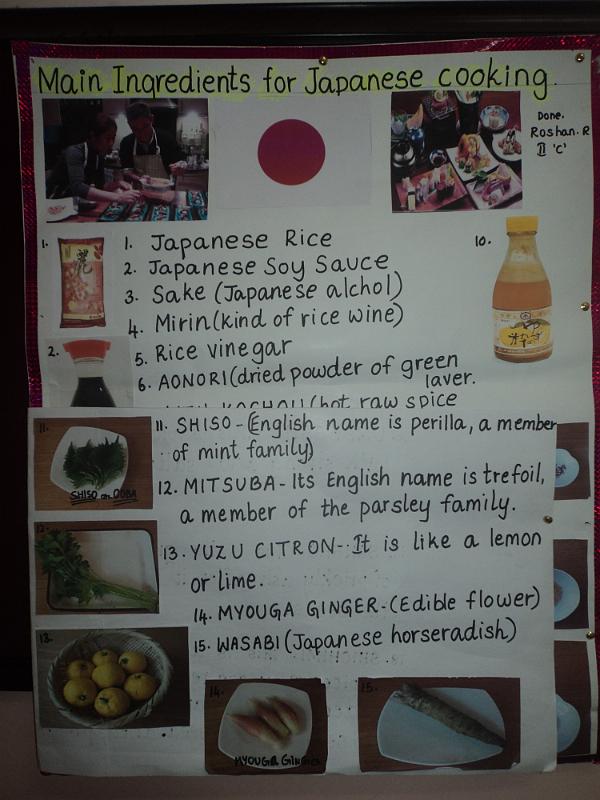 Main Ingredients for Japanese cooking
Done.
Roshan.R
II 'C'
1.
1. Japanese Rice
10.
2. Japanese Soy Sauce
3. Sake (Japanese alchol)
4. Mirin (kind of rice wine)
2.
5. Rice vinegar
6. AONORI (dried powder of green
laver.
KOSHOU (hot raw spice
11.
11. SHISO - (English name is perilla, a member
of mint family)
SHISO or OOBA
12. MITSUBA - Its English name is trefoil,
a member of the parsley family.
12.
13. YUZU CITRON - It is like a lemon
or lime.
14. MYOUGA GINGER - (Edible flower)
13.
15. WASABI (Japanese horseradish)
14.
15.
MYOUGA GINGER